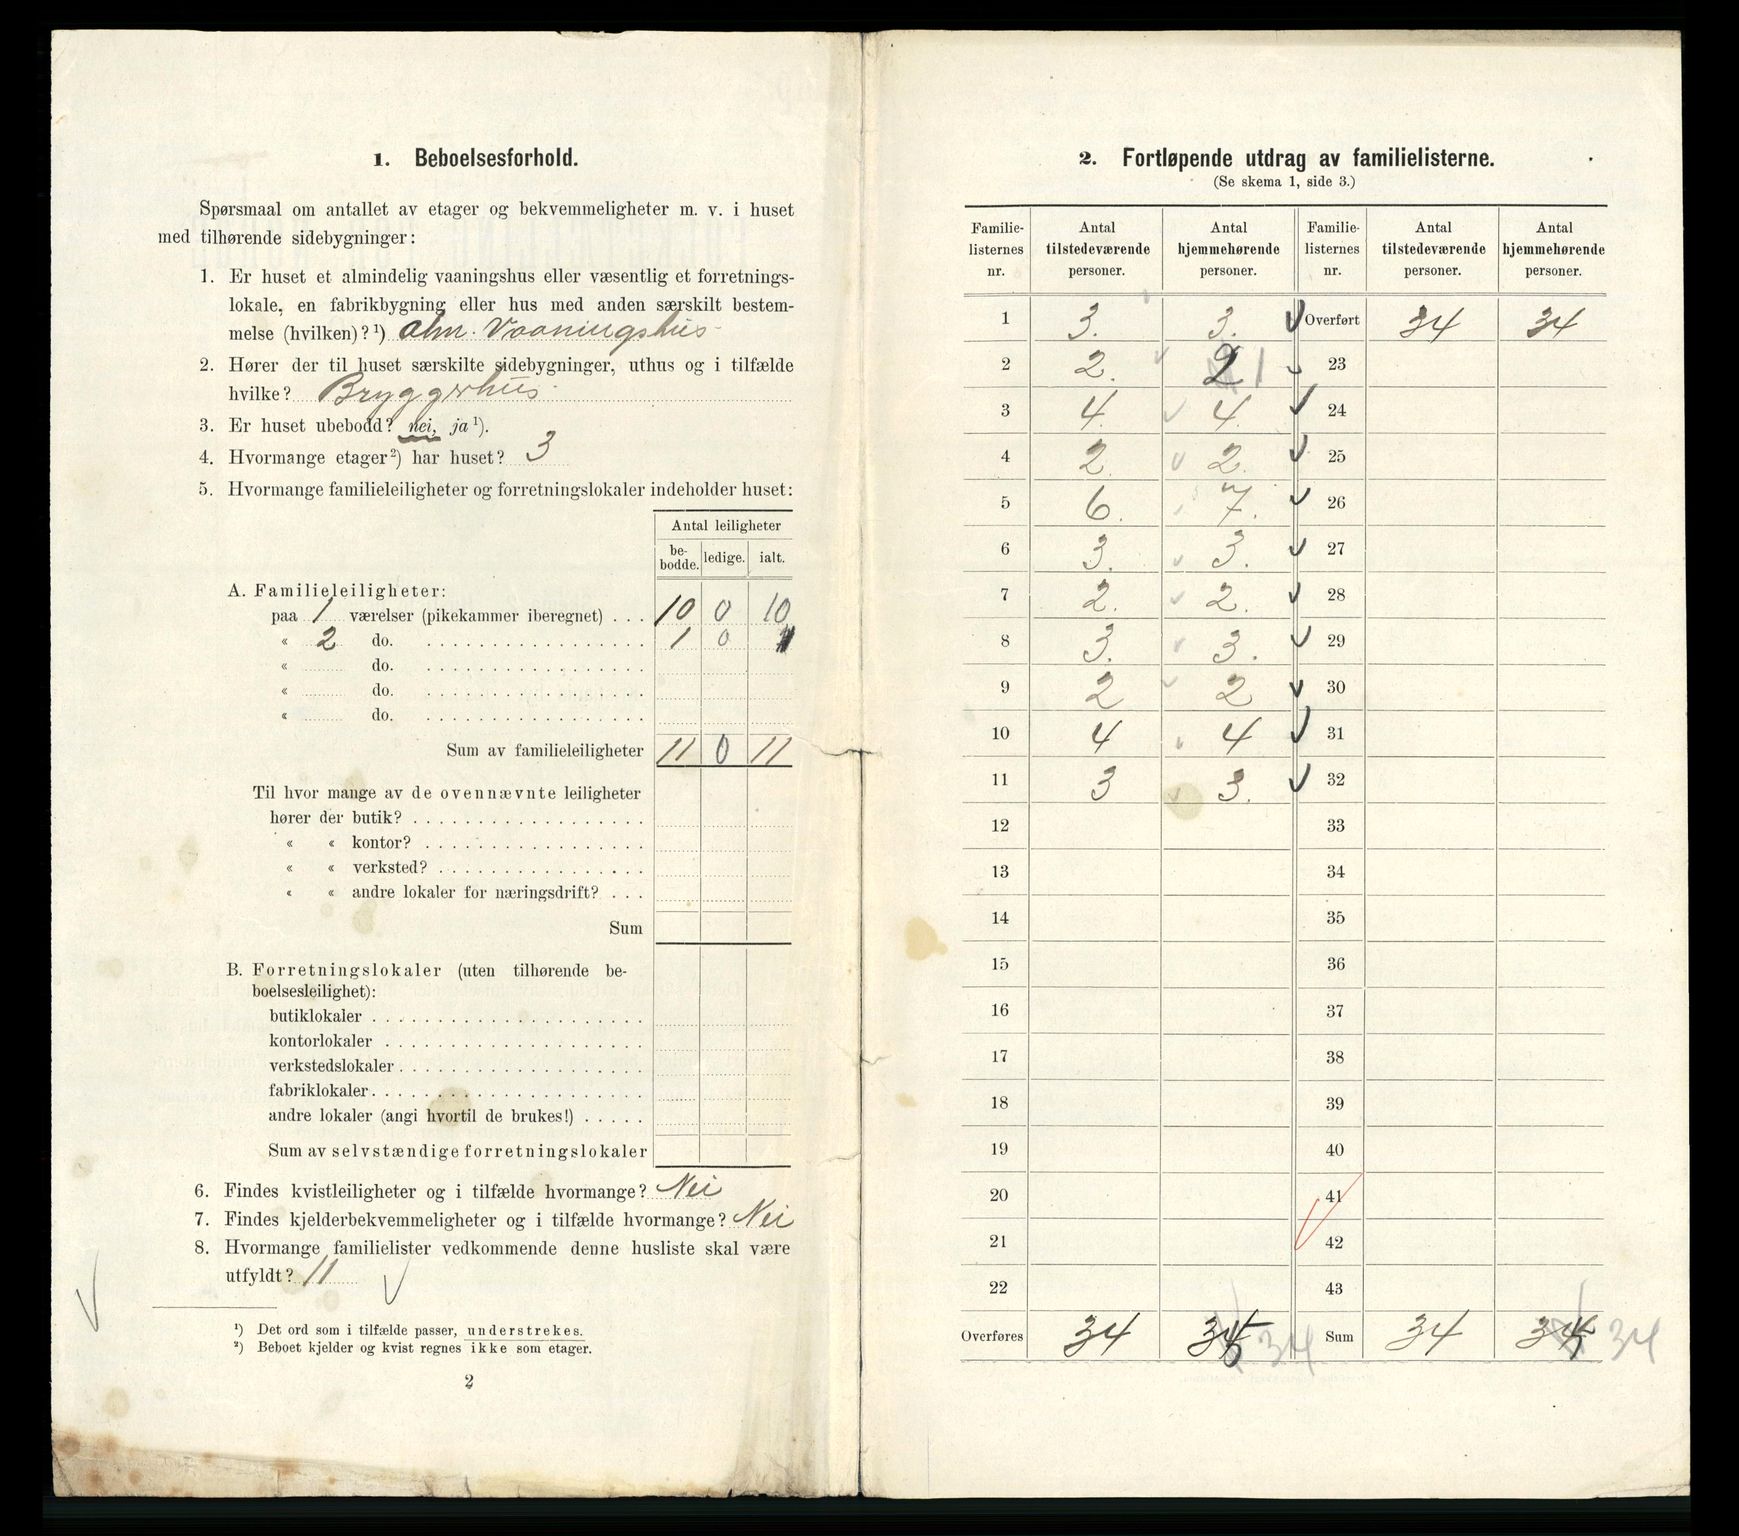 1. Beboelsesforhold.
Spørsmaal om antallet av etager og bekvemmeligheter m. v. i huset
med tilhørende sidebygninger:
1. Er huset et almindelig vaaningshus eller væsentlig et forretnings-
lokale, en fabrikbygning eller hus med anden særskilt bestem-
melse (hvilken)? ¹) alm. Vaaningshus
2. Hører der til huset særskilte sidebygninger, uthus og i tilfælde
hvilke? Bryggerhus
3. Er huset ubebodd? nei, ja ¹).
4. Hvormange etager ²) har huset? 3
5. Hvormange familieleiligheter og forretningslokaler indeholder huset:
Antal leiligheter
be-
bodde. ledige. ialt.
A. Familieleiligheter:
paa 1 værelser (pikekammer iberegnet) . . . 10 0 10
« 2 do. 1 0 1
« do.
« do.
« do.
Sum av familieleiligheter 11 0 11
Til hvor mange av de ovennævnte leiligheter
hører der butik?
« « kontor?
« « verksted?
« « andre lokaler for næringsdrift?
Sum
B. Forretningslokaler (uten tilhørende be-
boelsesleilighet):
butiklokaler
kontorlokaler
verkstedslokaler
fabriklokaler
andre lokaler (angi hvortil de brukes!)
Sum av selvstændige forretningslokaler
6. Findes kvistleiligheter og i tilfælde hvormange? Nei
7. Findes kjelderbekvemmeligheter og i tilfælde hvormange? Nei
8. Hvormange familielister vedkommende denne husliste skal være
utfyldt? 11
¹) Det ord som i tilfælde passer, understrekes.
²) Beboet kjelder og kvist regnes ikke som etager.
2
2. Fortløpende utdrag av familielisterne.
(Se skema 1, side 3.)
Familie-
listernes
nr. Antal
tilstedeværende
personer. Antal
hjemmehørende
personer. Familie-
listernes
nr. Antal
tilstedeværende
personer. Antal
hjemmehørende
personer.
1 3. 3. Overført 34 34
2 2. 2 1 23
3 4. 4. 24
4 2. 2. 25
5 6. 7. 26
6 3. 3. 27
7 2. 2. 28
8 3. 3. 29
9 2 2 30
10 4 4 31
11 3 3. 32
12 33
13 34
14 35
15 36
16 37
17 38
18 39
19 40
20 41
21 42
22 43
Overføres 34 35 34 Sum 34 34